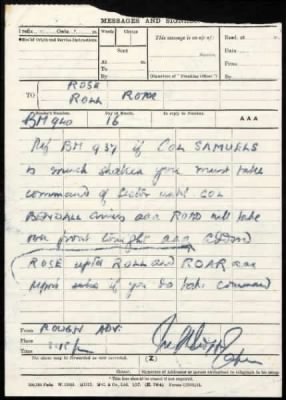 MESSAGES AND SIGNALS
Prefix Code
Words
Charge
This message is on a/c of:
Recd. at
Office Origin and Service Instructions.
Sent
At
To
By
(Signature of "Franking Officer")
By
TO
ROSE
ROLL ROAR
Sender's Number.
Day of Month.
In reply to Number.
AAA
BM 940
16
Ref BM 937 if COL SAMUELS
is much shaken you must take
command of sector until COL
BENDALL comes aaa ROAD will take
over front tonight aaa
ROSE ROLL and ROAR aaa
report if you do take command
From
ROUGH ADV.
Place
Time
The above may be forwarded as now corrected.
(Z)
Censor.
Signature of Addressor or person authorised to telegraph in his name.
* This line should be erased if not required.